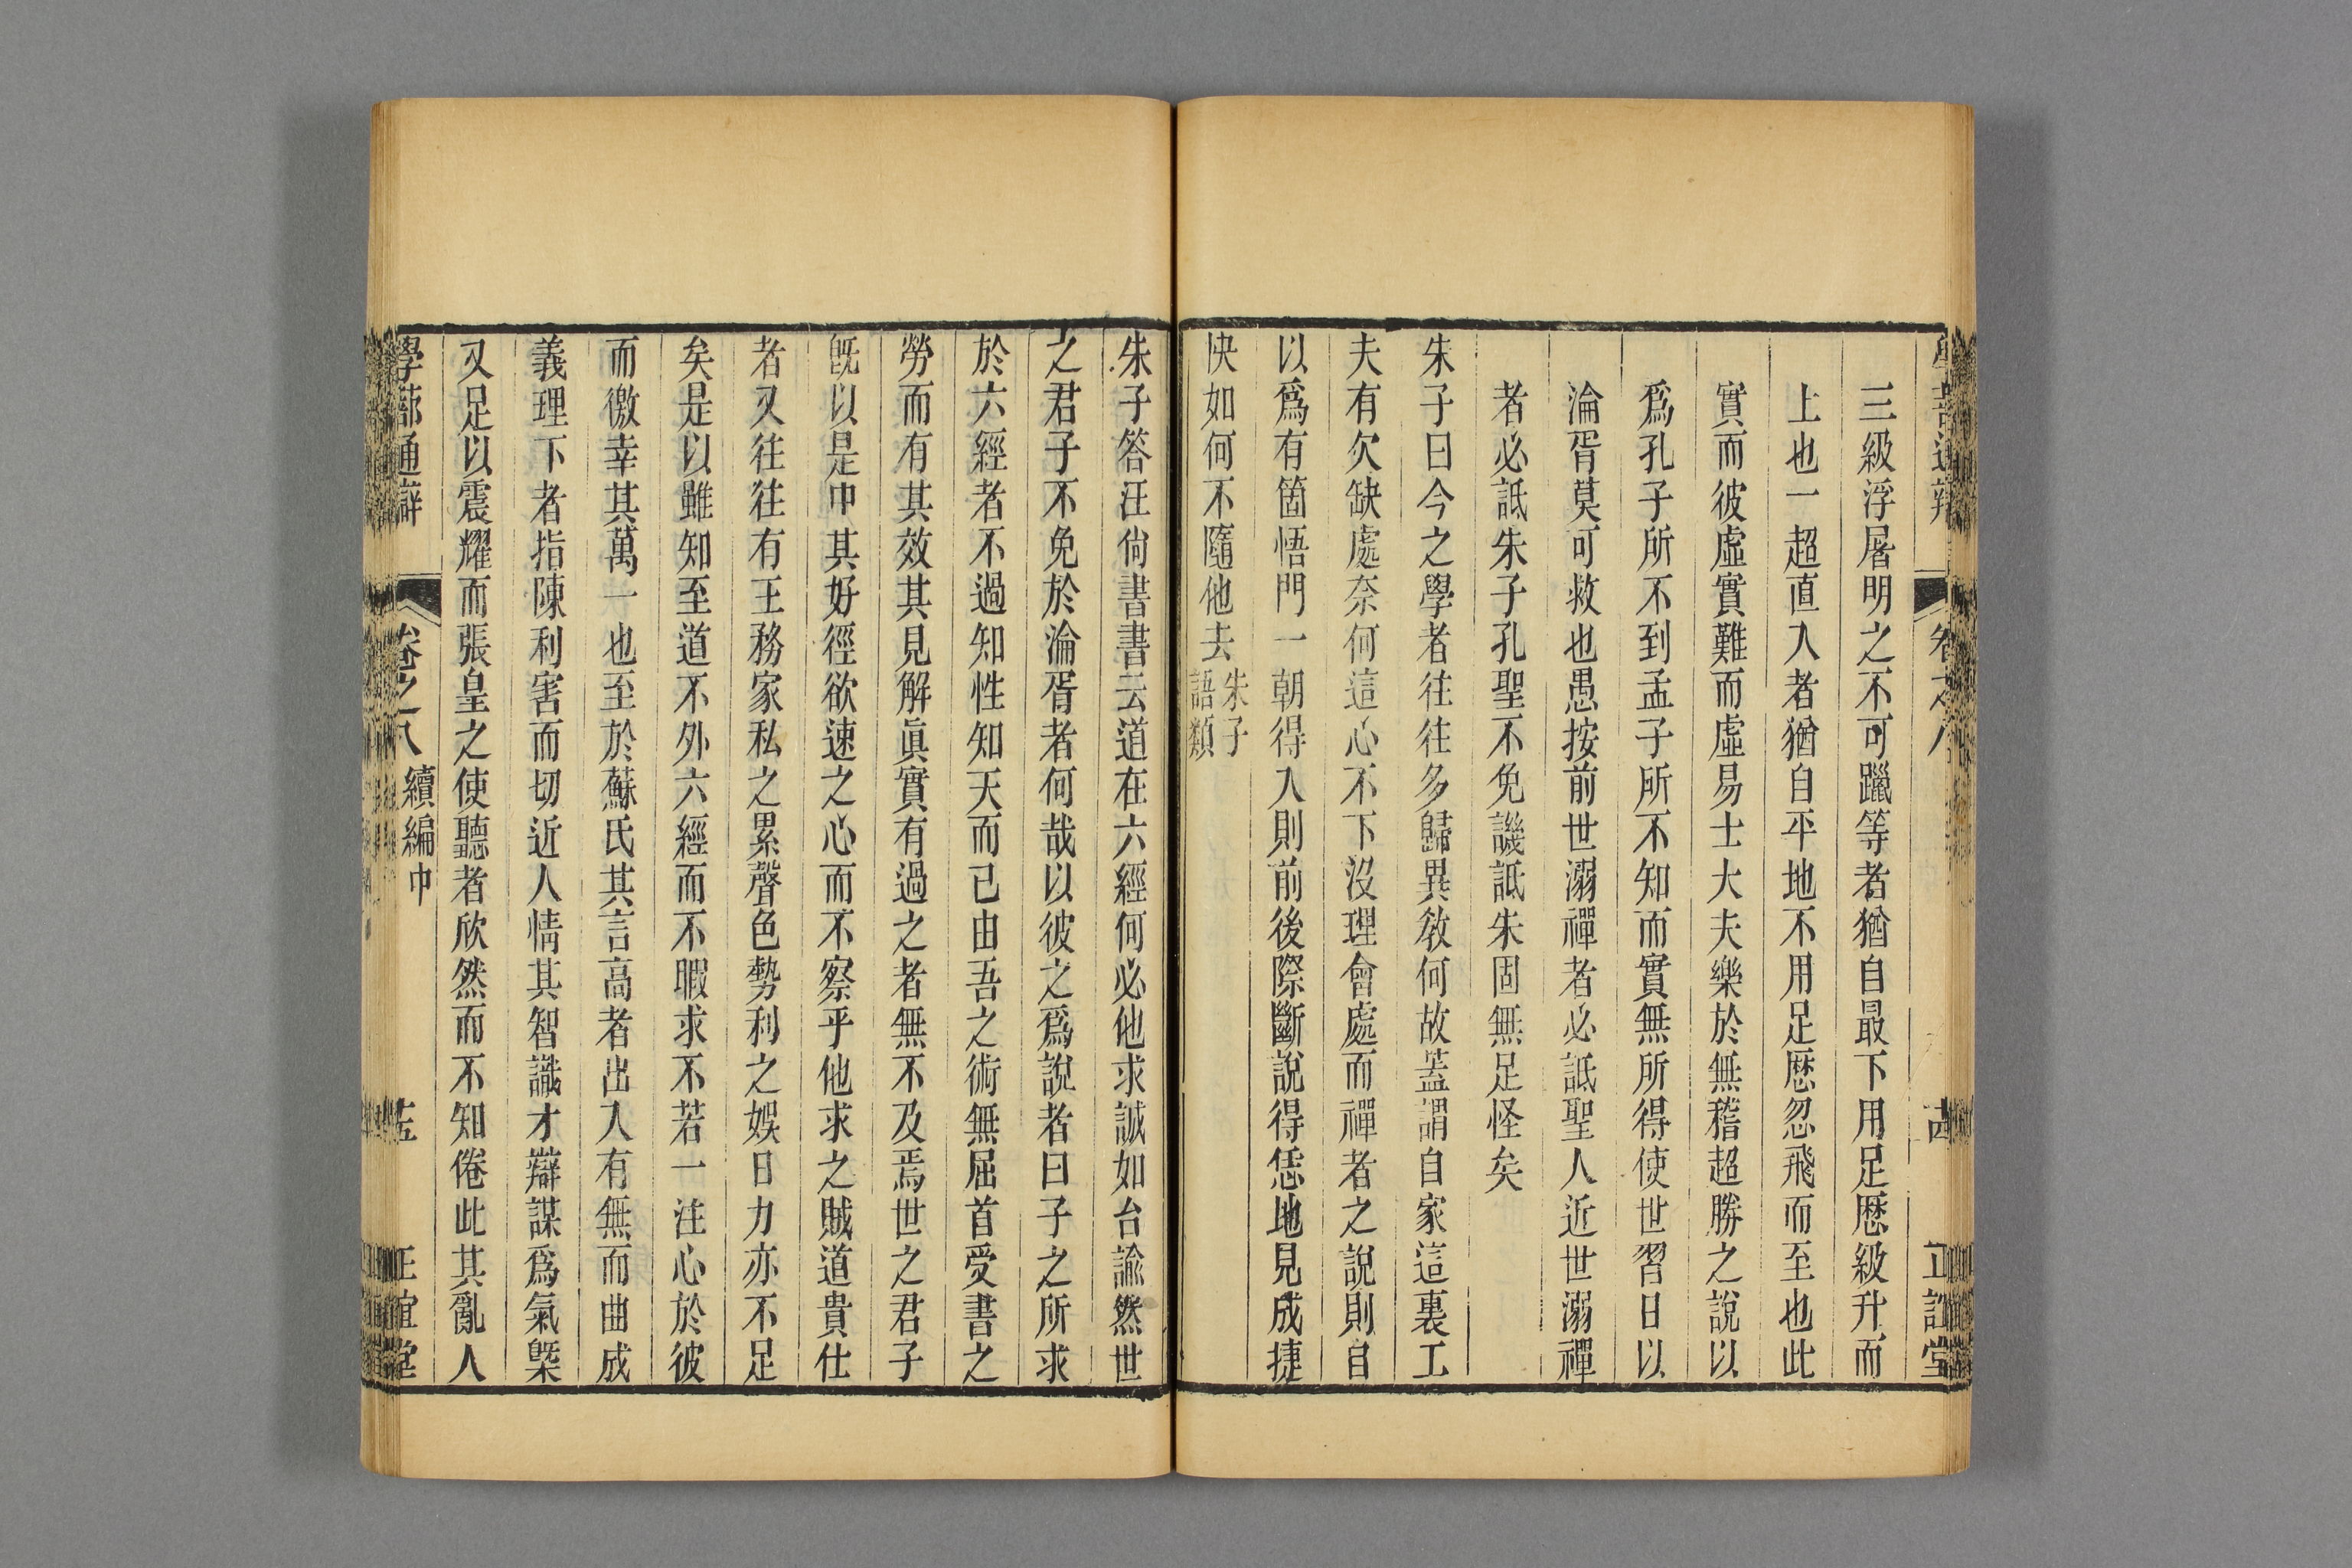 三級浮屠明之不可躐等者猶自最下用足歷級升而
上也一超直入者猶自平地不用足歷忽飛而至也此
實而彼虛實難而虛易士大夫樂於無稽超勝之說以
爲孔子所不到孟子所不知而實無所得使世習日以
淪胥莫可救也愚按前世溺禪者必詆聖人近世溺禪
者必詆朱子孔聖不免譏詆朱固無足怪矣
朱子曰今之學者往往多歸異教何故蓋謂自家這裏工
夫有欠缺處奈何這心不下沒理會處而禪者之說則自
以爲有箇悟門一朝得入則前後際斷說得恁地見成捷
快如何不隨他去朱子
語類
朱子答汪尙書書云道在六經何必他求誠如台諭然世
之君子不免於淪胥者何哉以彼之爲說者曰子之所求
於六經者不過知性知天而已由吾之術無屈首受書之
勞而有其效其見解眞實有過之者無不及焉世之君子
旣以是中其好徑欲速之心而不察乎他求之賊道貴仕
者又往往有王務家私之累聲色勢利之娛日力亦不足
矣是以雖知至道不外六經而不暇求不若一注心於彼
而徼幸其萬一也至於蘇氏其言高者出入有無而曲成
義理下者指陳利害而切近人情其智識才辯謀爲氣槩
又足以震耀而張皇之使聽者欣然而不知倦此其亂人
學蔀通辯 卷之八 續編中 正誼堂